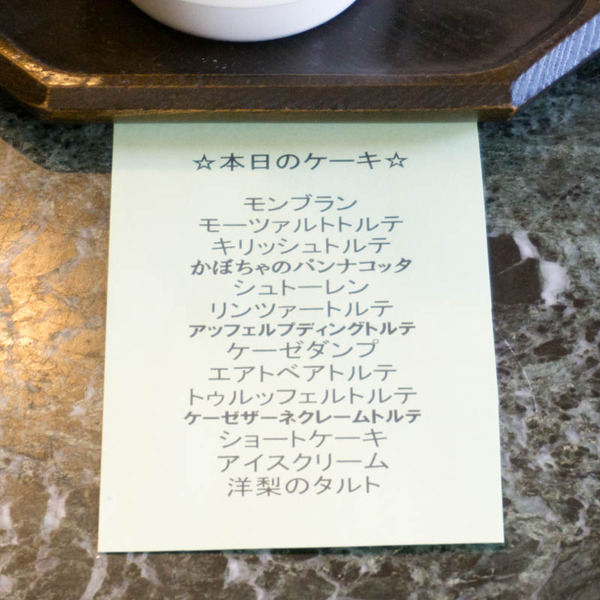 ☆本日のケーキ☆
モンブラン
モーツァルトトルテ
キリッシュトルテ
かぼちゃのパンナコッタ
シュトーレン
リンツァートルテ
アッフェルプディングトルテ
ケーゼダンプ
エアトベアトルテ
トゥルッフェルトルテ
ケーゼザーネクレームトルテ
ショートケーキ
アイスクリーム
洋梨のタルト